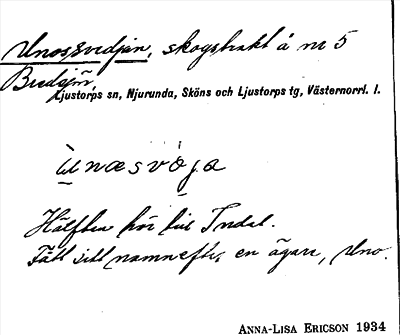 Unossvedjan, skogstrakt å nr 5
Bredsjön,
Ljustorps sn, Njurunda, Sköns och Ljustorps tg, Västernorrl. l.
ùnæsvöja
Hälften hör till Indal.
Fått sitt namn efter en ägare, Uno.
ANNA-LISA ERICSON 1934